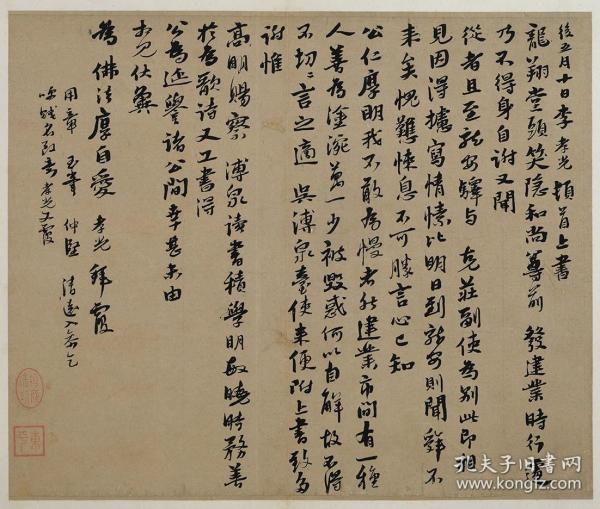 後五月十日李孝光頓首上書
龍翔堂頭笑隱和尚尊前 發建業時行遽
乃不得身自謝又聞
從者且至龍安驛与 克莊副使為別此即祖
見因得攄寫情愫比明日到龍安則聞辭不
来矣愧難悚息不可勝言心已知
公仁厚明我不敢為慢者然建業市間有一種
人善為塗涴萬一少被毀惑何以自解故不得
不切〻言之適 吳溥泉臺使来便附上書致多
謝惟
高明賜察 溥泉讀書積學明敏曉時務善
於為歌詩又工書得
公為延譽諸公間幸甚未由
相見伏冀
為佛法厚自愛 孝光 拜覆
用章 玉章 仲堅 清遠
孝光又覆
孔夫子旧书网
www.kongfz.com